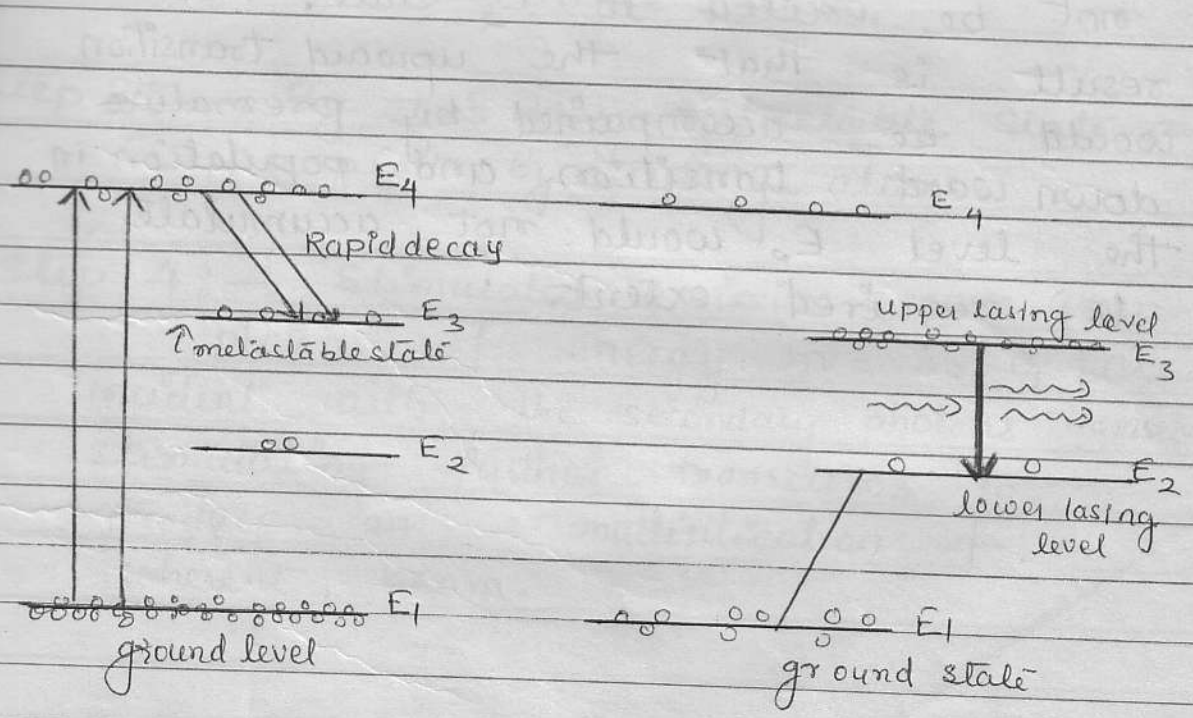 E4
Rapid decay
E3
↑ metastable state
E2
E1
ground level
E4
upper lasing level
E3
E2
lower lasing
level
E1
ground state